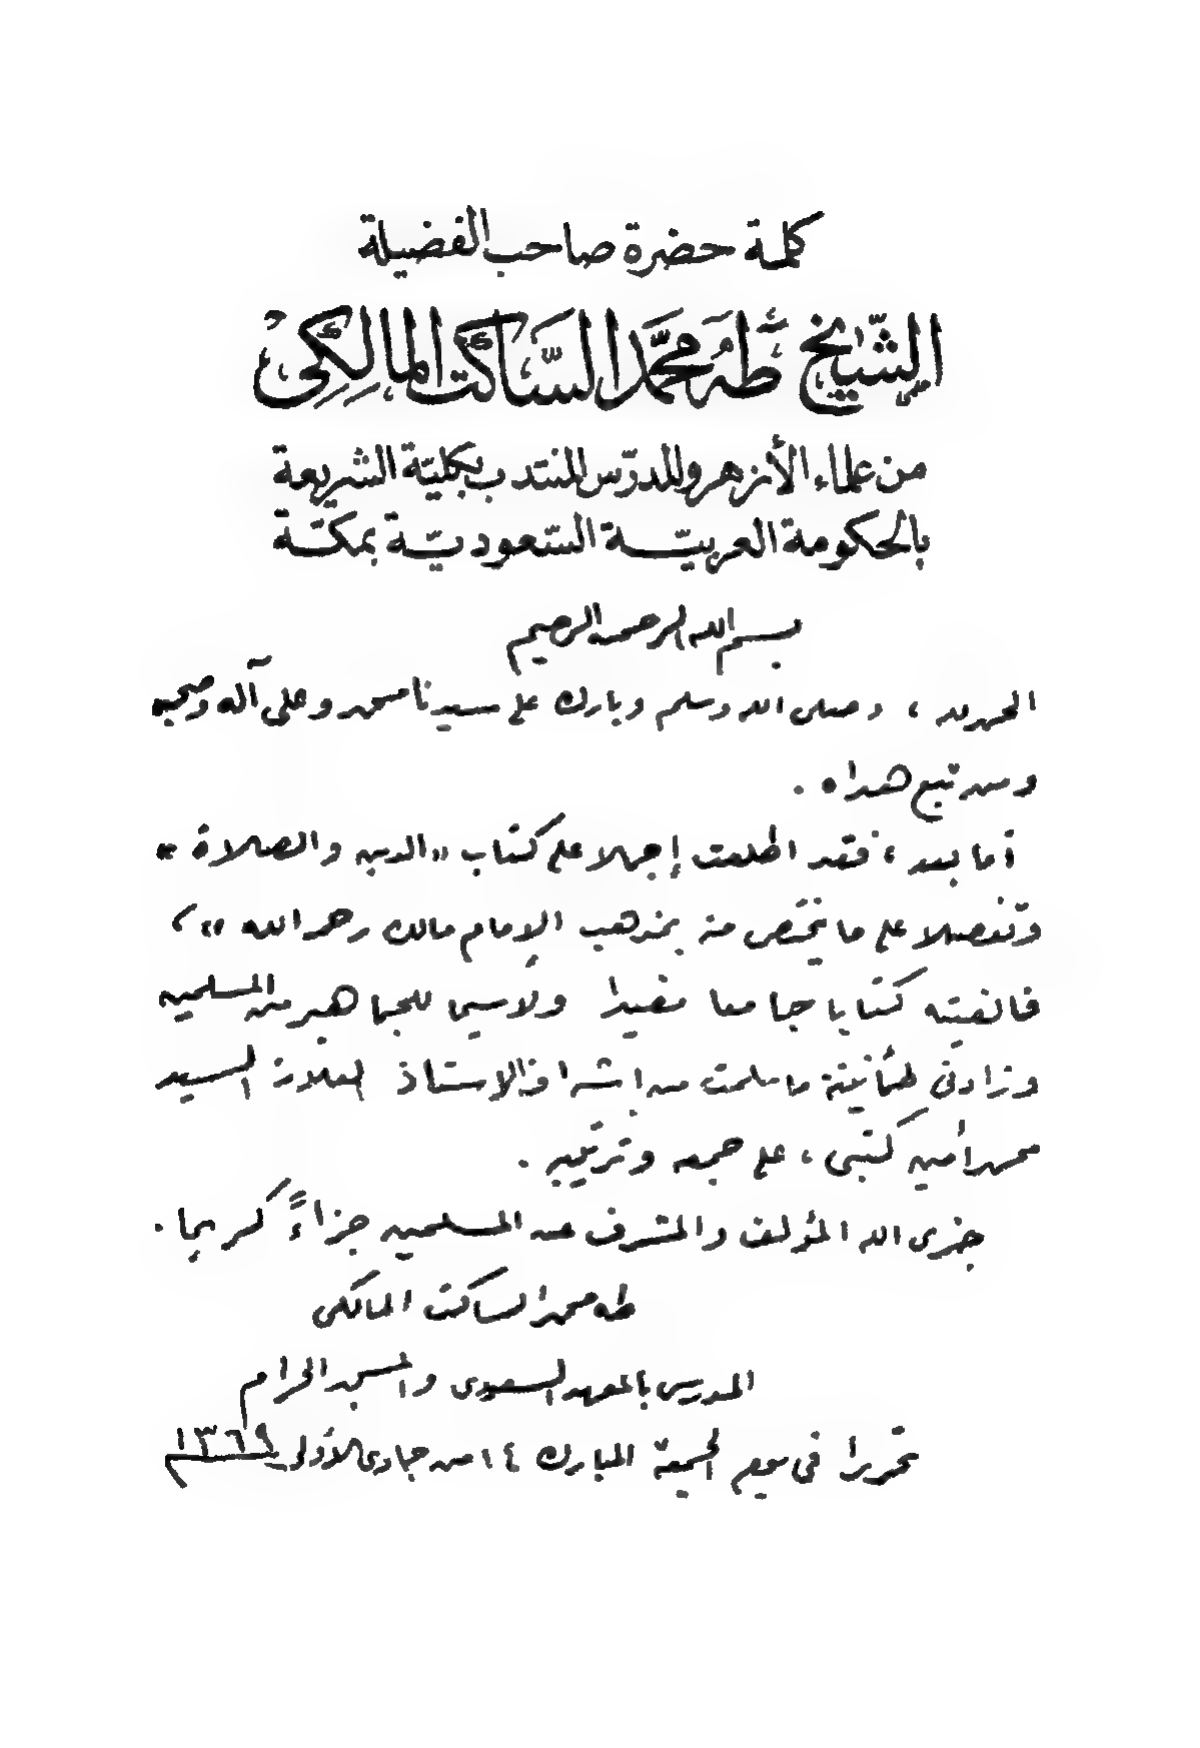 كلمة حضرة صاحب الفضيلة
الشَّيخ طٰهٰ مُحَمَّد السَّاكت المالِكِيْ
من علماء الأزهر والمدرّس المنتدب بكليّة الشريعة
بالحكومة العربيّة السّعوديّة بمكّة
بسم الله الرحمن الرحيم
الحمد لله ، وصلى الله وسلم وبارك على سيدنا محمد وعلى آله وصحبه
ومن تبع هداه .
أما بعد ، فقد اطلعت إجمالا على كتاب « الدين والصلاة »
وتفصيلا على ما يختص منه بمذهب الإمام مالك رحمه الله » ،
فألفيته كتابا جامعا مفيدا ولاسيما للجماهير من المسلمين
وزادني طمأنينة ما علمت من إشراف الأستاذ العلامة السيد
محمد أمين كتبى ، على جمعه وترتيبه .
جزى الله المؤلف والمشرف عن المسلمين جزاءً كريما .
طه محمد الساكت المالكى
المدرس بالمعهد السعودى والمسجد الحرام
تحريرا فى يوم الجمعة المبارك ١٤ من جمادى الأولى ١٣٦٩